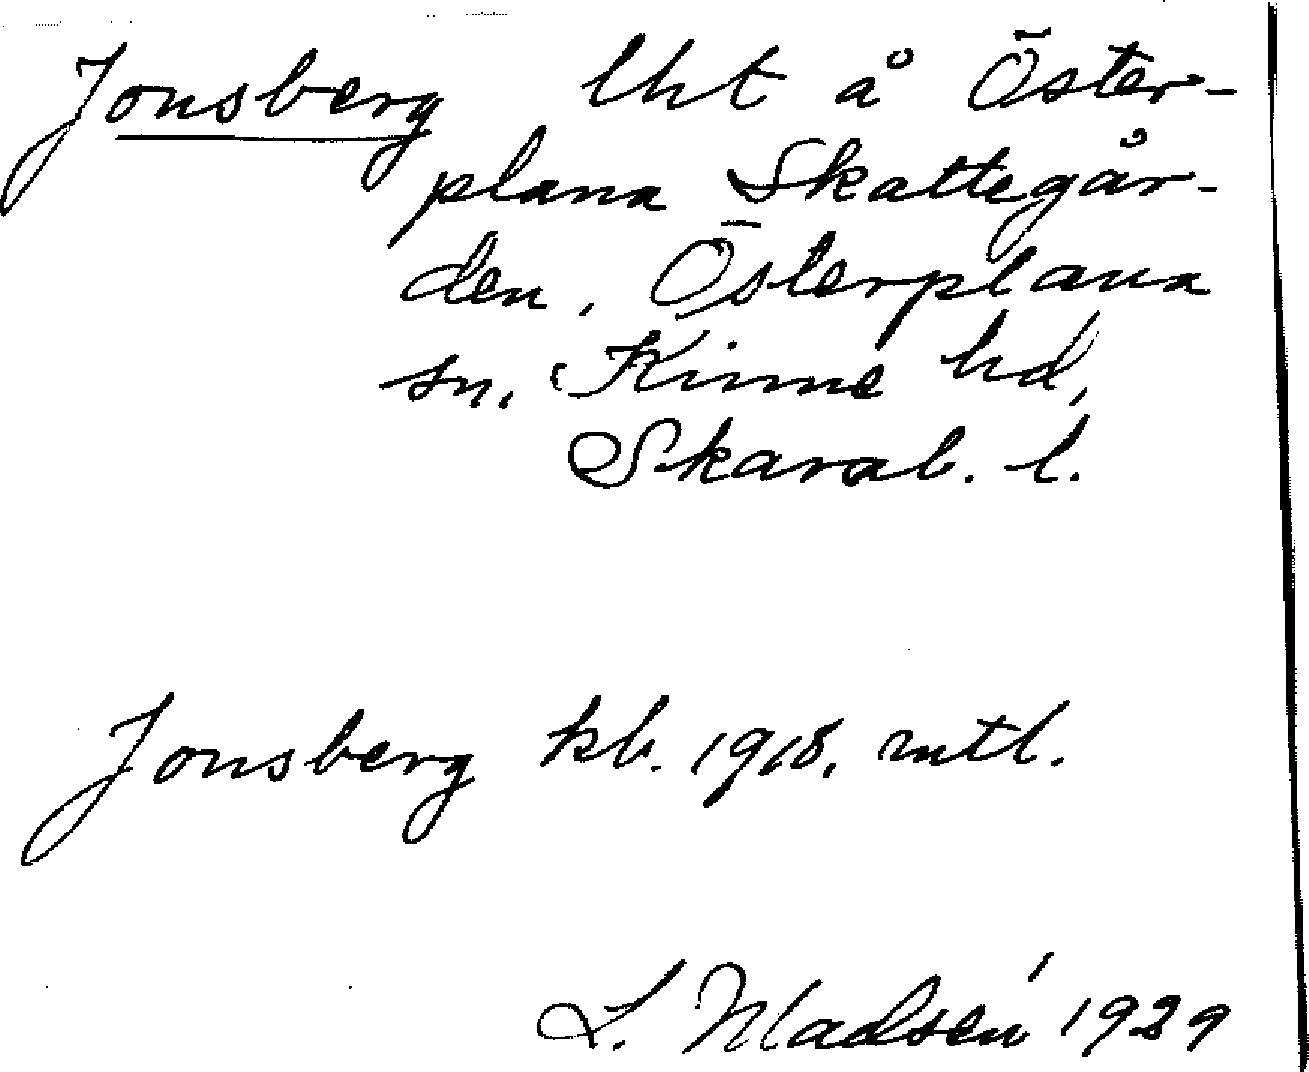 Jonsberg lht å Öster-
plana Skattegår-
den, Österplana
sn, Kinne hd,
Skarab. l.
Jonsberg kb. 1918. mtl.
L. Madsén 1929